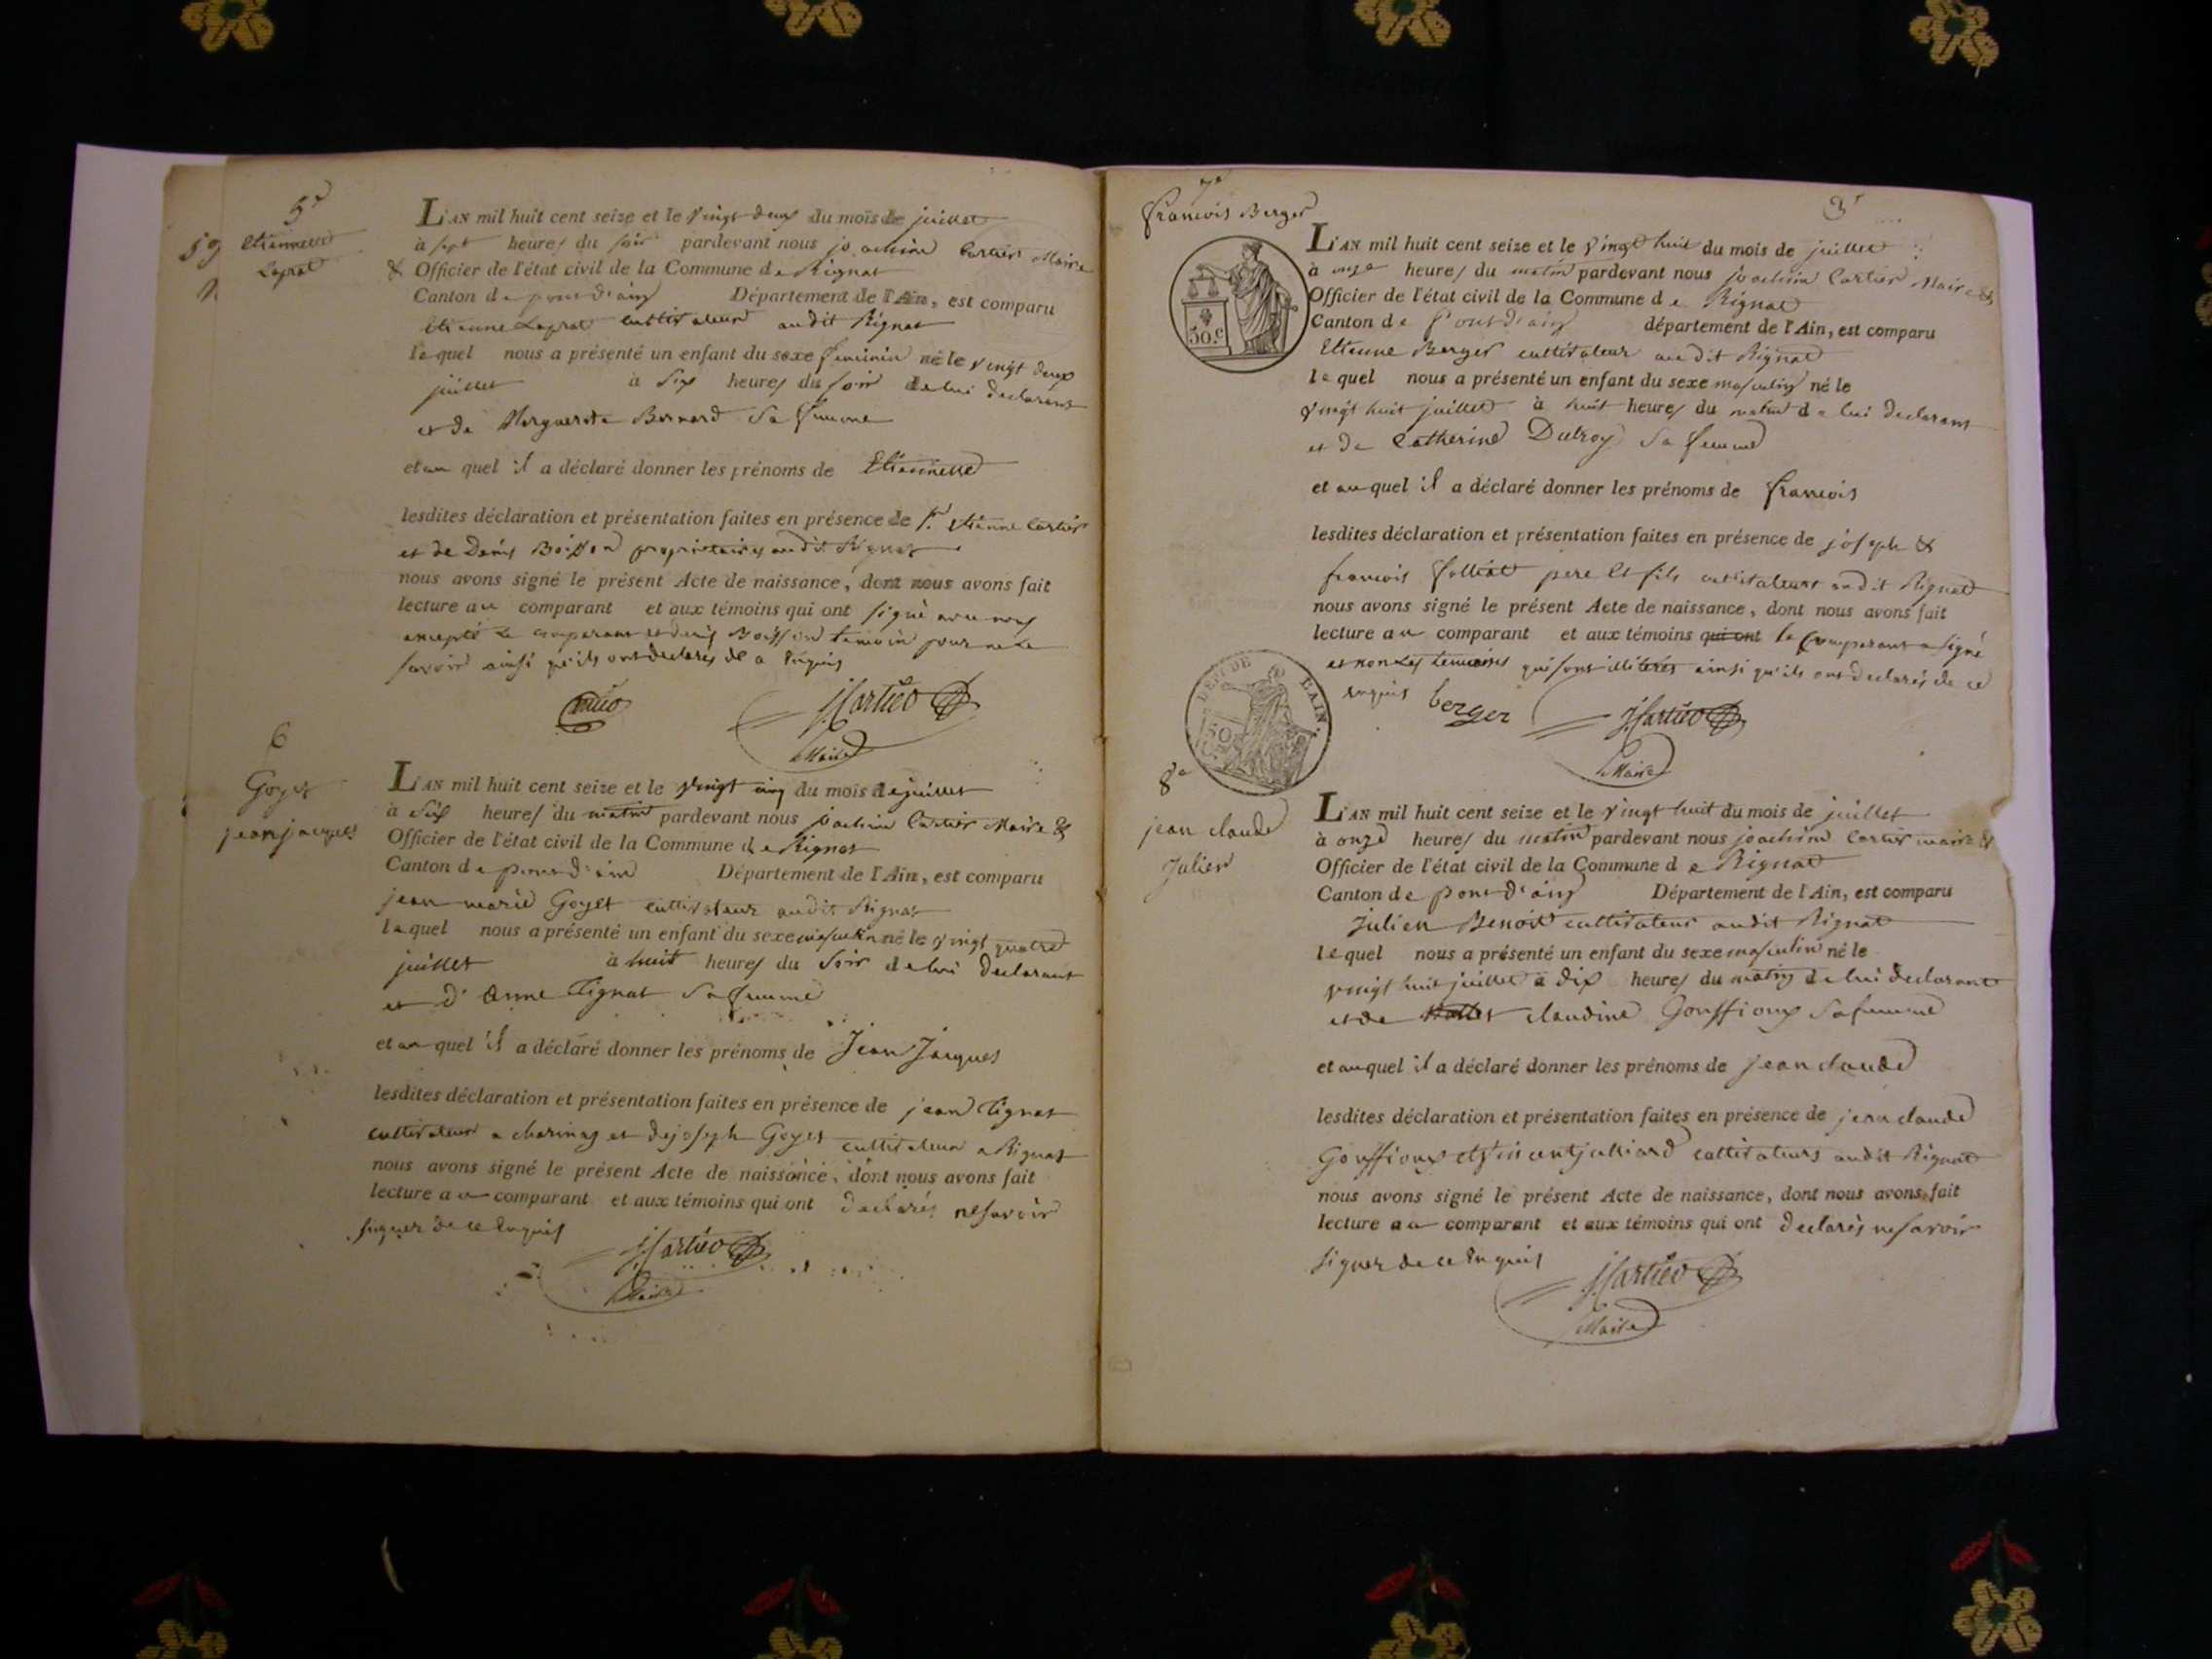 5e
59
Etiennette
Laprat
L'AN mil huit cent seize et le vingt deux du mois de juillet
à sept heures du soir pardevant nous joachim Cartier Maire
& Officier de l'état civil de la Commune de Rignat
Canton de pont d'ain Département de l'Ain, est comparu
Etienne Laprat cultivateur audit Rignat
lequel nous a présenté un enfant du sexe feminin né le vingt deux
juillet à six heures du soir de lui declarant
et de Marguerite Bernard sa femme
et au quel il a déclaré donner les prénoms de Etiennette
lesdites déclaration et présentation faites en présence de Sr. Etienne Cartier
et de Denis Boisson proprietaires audit Rignat
nous avons signé le présent Acte de naissance, dont nous avons fait
lecture au comparant et aux témoins qui ont signé avec nous
excepté le comparant et denis Boisson temoin pour ne le
savoir ainsi qu'ils ont declarés de ce enquis
JCartier
Maire
6
Goyet
jean jacques
L'AN mil huit cent seize et le vingt cinq du mois de juillet
à six heures du matin pardevant nous joachim Cartier Maire &
Officier de l'état civil de la Commune de Rignat
Canton de pont d'ain Département de l'Ain, est comparu
jean marie Goyet cultivateur audit Rignat
lequel nous a présenté un enfant du sexe masculin né le vingt quatre
juillet à huit heures du soir de lui declarant
et d'anne Tignat sa femme
et au quel il a déclaré donner les prénoms de Jean Jacques
lesdites déclaration et présentation faites en présence de jean Tignat
cultivateur a charinas et de joseph Goyet cultivateur a Rignat
nous avons signé le présent Acte de naissance, dont nous avons fait
lecture au comparant et aux témoins qui ont declarés ne savoir
signer de ce enquis
JCartier
Maire
7e
françois Berger
3e
50.c
L'AN mil huit cent seize et le vingt huit du mois de juillet
à onze heures du matin pardevant nous joachim Cartier Maire &
Officier de l'état civil de la Commune de Rignat
Canton de Pont d'ain département de l'Ain, est comparu
Etienne Berger cultivateur audit Rignat
lequel nous a présenté un enfant du sexe masculin né le
vingt huit juillet à huit heures du matin de lui declarant
et de Catherine Dutroy sa femme
et au quel il a déclaré donner les prénoms de françois
lesdites déclaration et présentation faites en présence de joseph &
françois folliat pere et fils cultivateurs audit Rignat
nous avons signé le présent Acte de naissance, dont nous avons fait
lecture au comparant et aux témoins qui ont le comparant a signé
et non les temoins qui sont illiterés ainsi qu'ils ont declarés de ce
enquis berger JCartier
Maire
DEPT. DE L'AIN.
50
8e
jean claude
Julien
L'AN mil huit cent seize et le vingt huit du mois de juillet
à onze heures du matin pardevant nous joachim Cartier maire &
Officier de l'état civil de la Commune de Rignat
Canton de pont d'ain Département de l'Ain, est comparu
Julien Benoit cultivateur audit Rignat
lequel nous a présenté un enfant du sexe masculin né le
vingt huit juillet à dix heures du matin de lui declarant
et de claudine Gouffioux sa femme
et au quel il a déclaré donner les prénoms de jean claude
lesdites déclaration et présentation faites en présence de jean claude
Gouffioux et vincent julliard cultivateurs audit Rignat
nous avons signé le présent Acte de naissance, dont nous avons fait
lecture au comparant et aux témoins qui ont declarés ne savoir
signer de ce enquis
JCartier
Maire